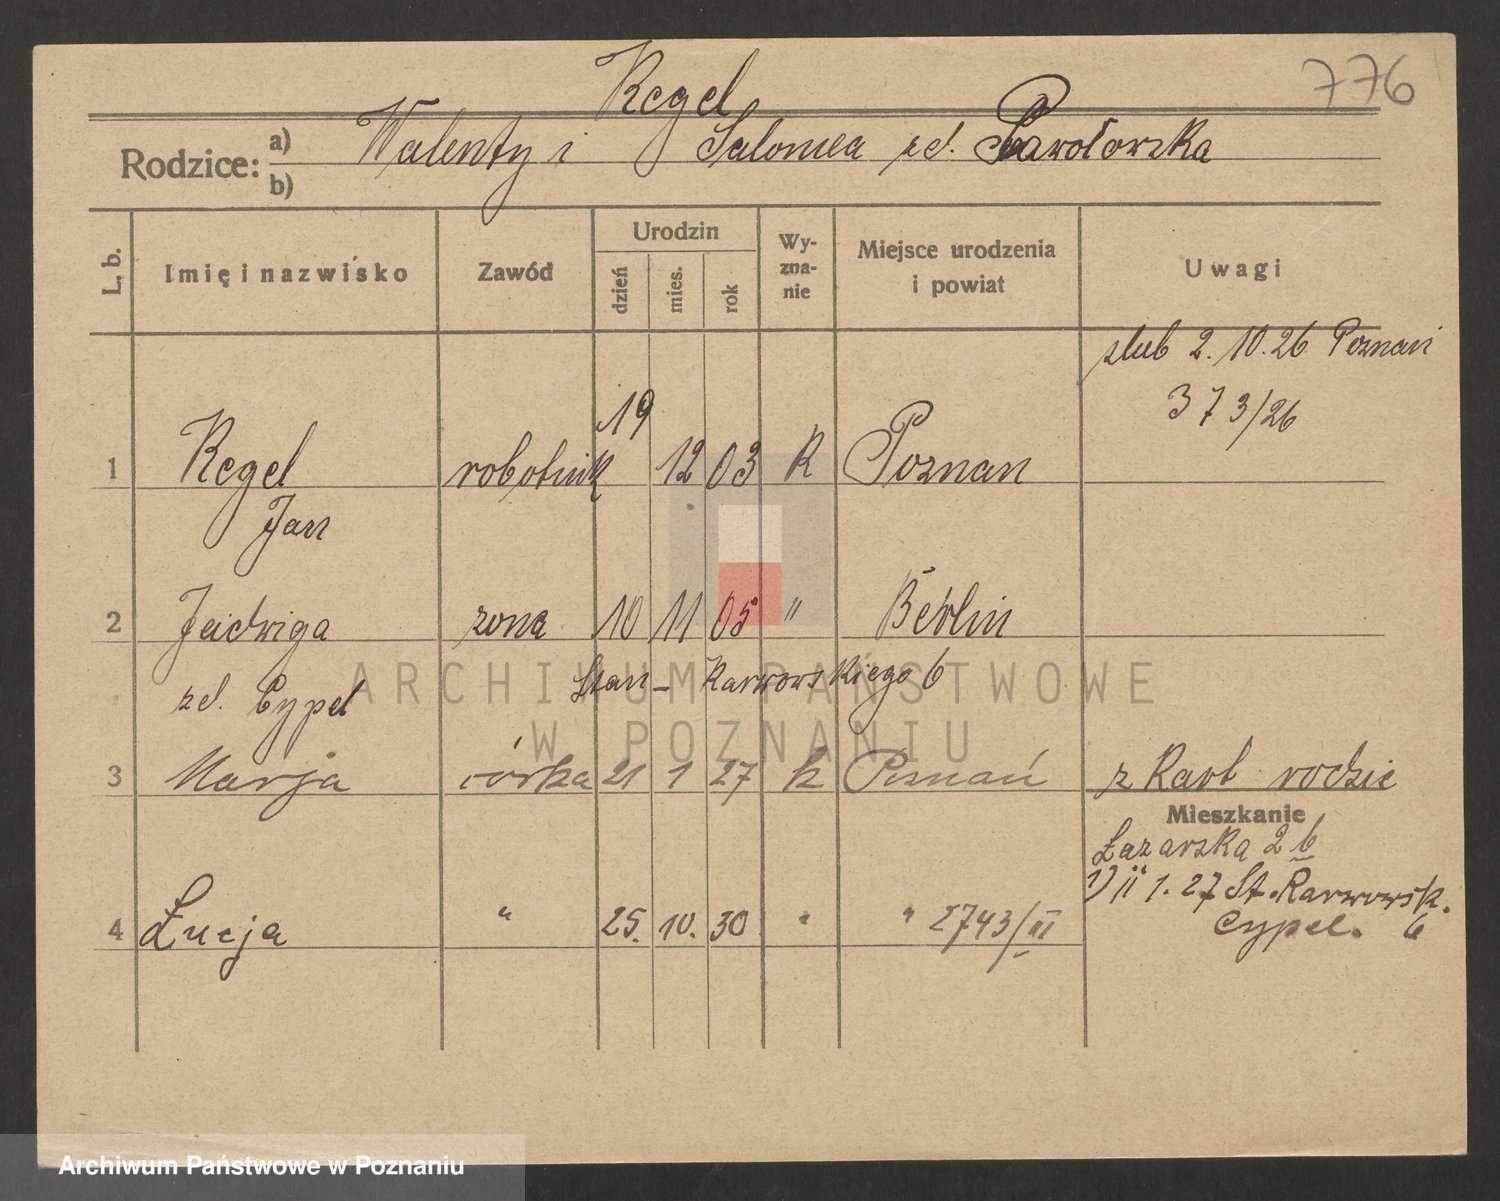 776
Regel
Rodzice: a) Walenty i Salomea zd.
b)
L. b. Imię i nazwisko Zawód Urodzin dzień mies. rok Wyznanie Miejsce urodzenia i powiat Uwagi
ślub 2. 10. 26 Poznań
373/26
1 Regel robotnik 19 12 03 R Poznan
Jan
2 Jadwiga zona 10 11 05 " Berlin
zd. Cypel Stan - Karwowskiego 6
3 Marja córka 21 1 27 k Poznań z Kart rodzic
Mieszkanie
Łazarska 2 b
1) 11 1. 27 St. Karwowsk. 6
Cypel.
4 Łucja " 25. 10. 30 " " 2743/III
ARCHIWUM PAŃSTWOWE
W POZNANIU
Archiwum Państwowe w Poznaniu